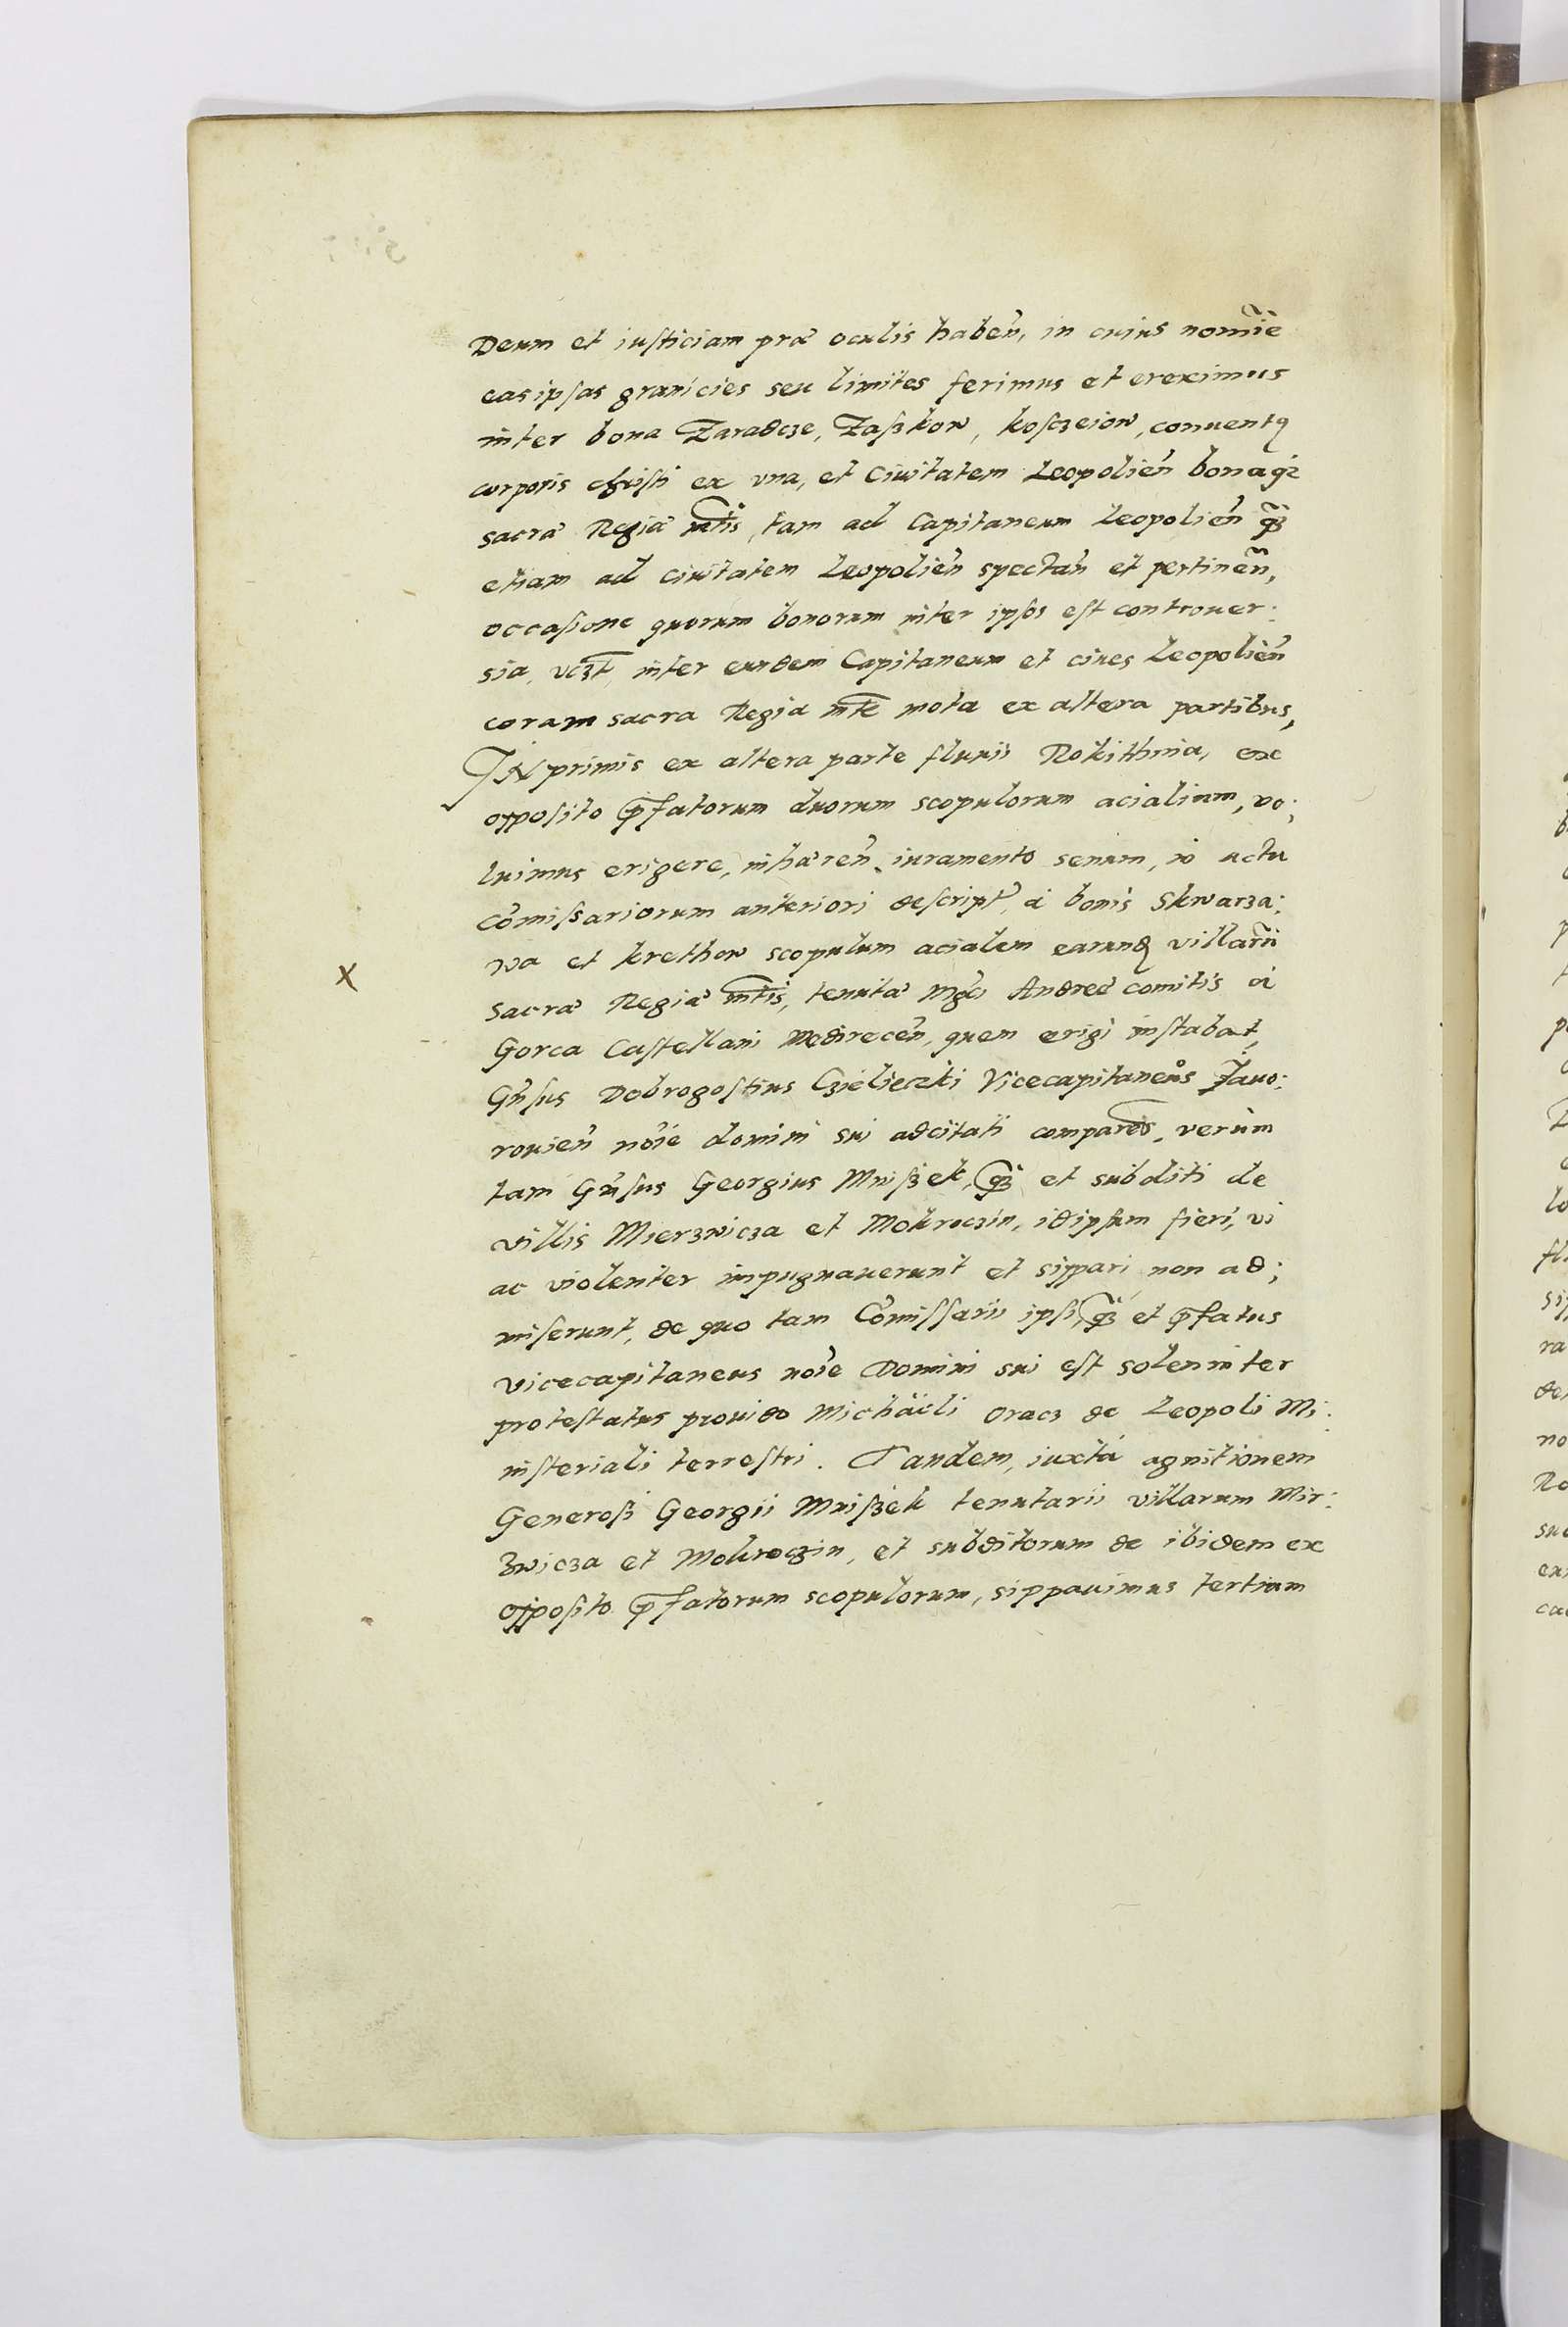 Deum et iusticiam præ oculis habeñ, in cuius nomĩe
eas ipsas granicies seu limites ferimus et ereximus
inter bona Zaradcze, Zaszkow, kosczeiow, conuentꝯ
corporis christi ex vna, et Ciuitatem Leopolieñ bonaqꝫ
sacræ Regiæ mt̃is, tam ad Capitaneum Leopolieñ qꝫ̃
etiam ad ciuitatem Leopolieñ spectañ et pertineñ,
occasione quorum bonorum inter ipsos est controuer:
sia, vcꝫt, inter eundem Capitaneum et ciues Leopolieñ
coram sacra Regia mt̃e mota ex altera partibus,
INprimis ex altera parte fluuii Rokithnia, ex
opposito p̃fatorum duorum scopulorum acialium, vo:
luimus erigere, inhæreñ iuramento senum, in actu
Com̃issariorum anteriori descript̃, à bonis Skwarza:
wa et krethow scopulum acialem earund villarũ
sacræ Regiæ mt̃is, tenutæ Mgc̃i Andreæ comitis à
Gorca Castellani Medireceñ, quem erigi instabat,
Gñsus Dobrogostius Czielieczki Vicecapitaneus Jauo:
rouieñ noĩe domini sui adcitati comparens, verùm
tam Gñsus Georgius Mniszek, qꝫ̃ et subditi de
villis Mierzwicza et Mokroczin, idipsum fieri, vi
ac violenter impugnauerunt et sippari non ad:
miserunt, de quo tam Com̃issarii ipsi, qꝫ̃ et p̃fatus
vicecapitaneus noĩe Domini sui est solenniter
protestatus prouido Michaëli Oracz de Leopoli Mi:
nisteriali terrestri. Tandem, iuxtà agnitionem
Generosi Georgii Mniszek tenutarii villarum Mir:
zwicza et Mokroczin, et subditorum de ibidem ex
opposito p̃fatorum scopulorum, sippauimus tertium
X